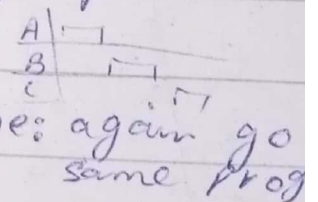 A
B
C
e: again go
same prog